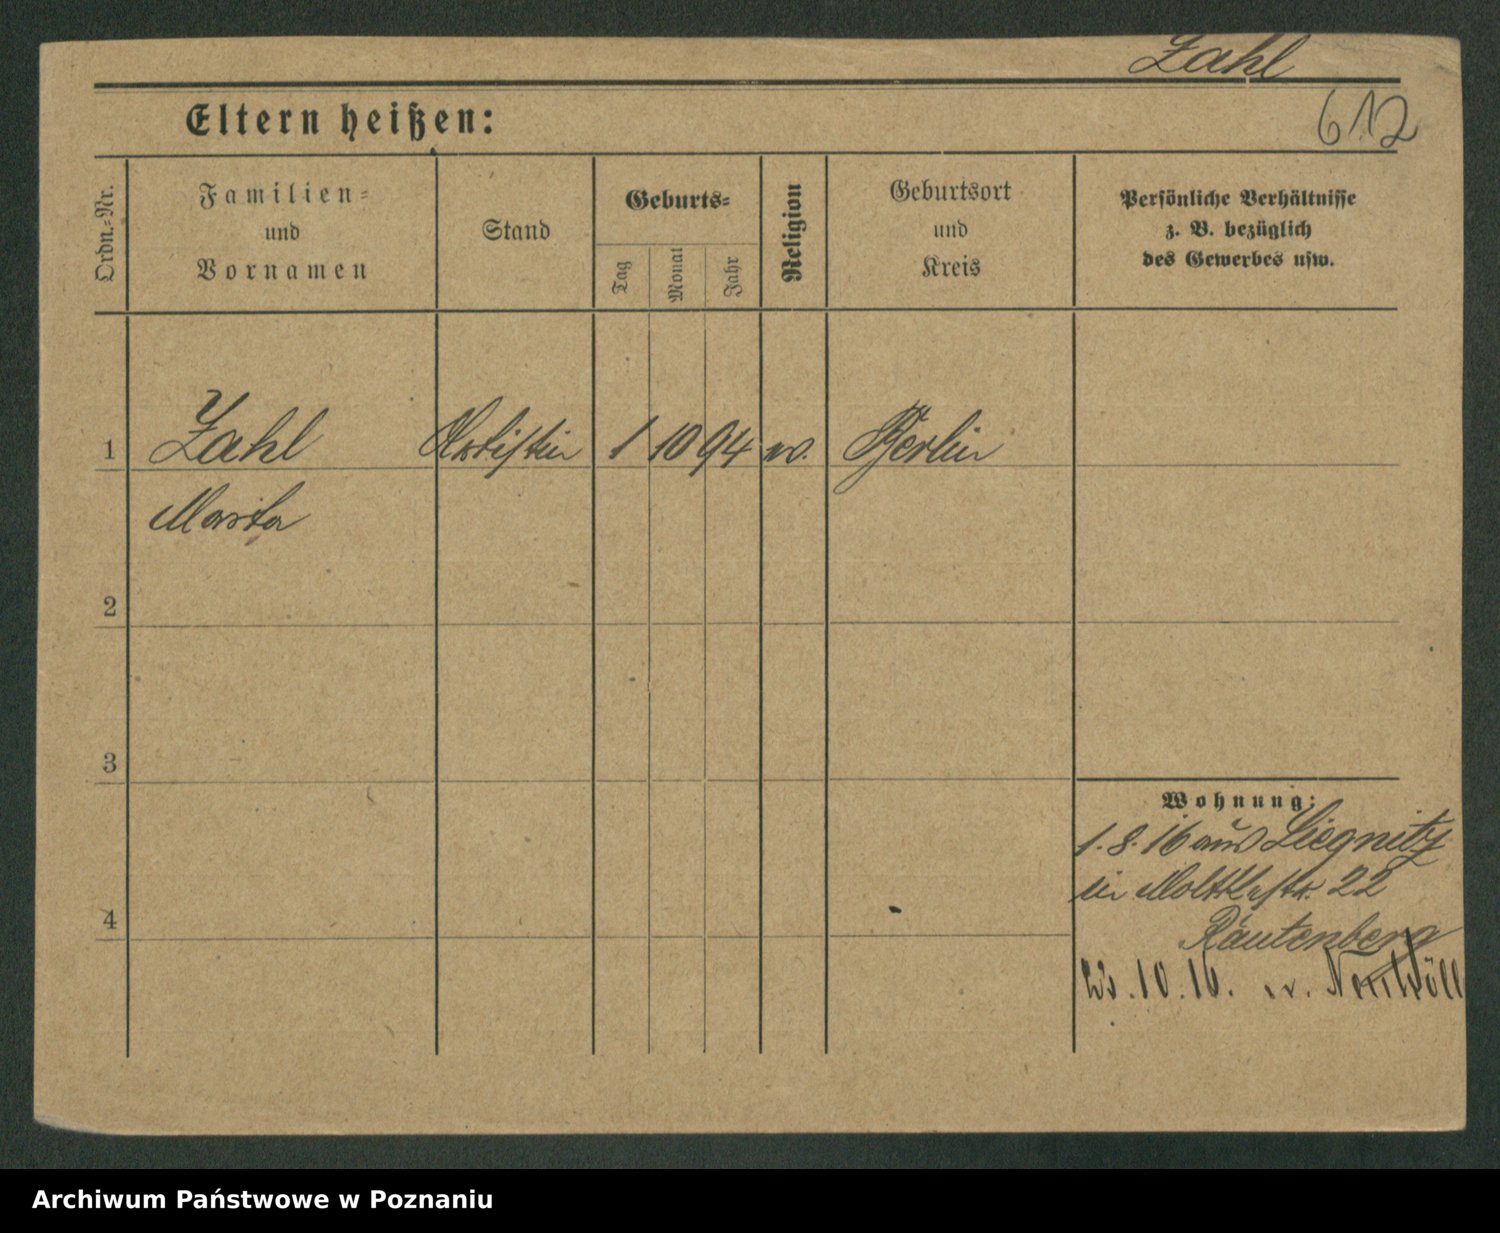 Zahl
612
Eltern heißen:
Ordn.-Nr.
Familien-
und
Vornamen
Stand
Geburts-
Tag
Monat
Jahr
Religion
Geburtsort
und
Kreis
Persönliche Verhältnisse
z. B. bezüglich
des Gewerbes usw.
1 Zahl Artistin 1 10 94 Berlin
2
3
4
Wohnung:
1.8.16 aus Liegnitz
in Moltkestr. 22
Rautenberg
10.16. n.
Archiwum Państwowe w Poznaniu